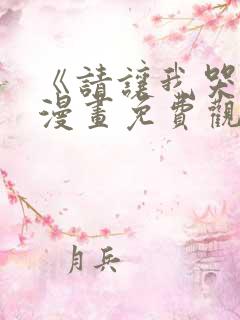 《請讓我哭
漫畫免費觀
月兵